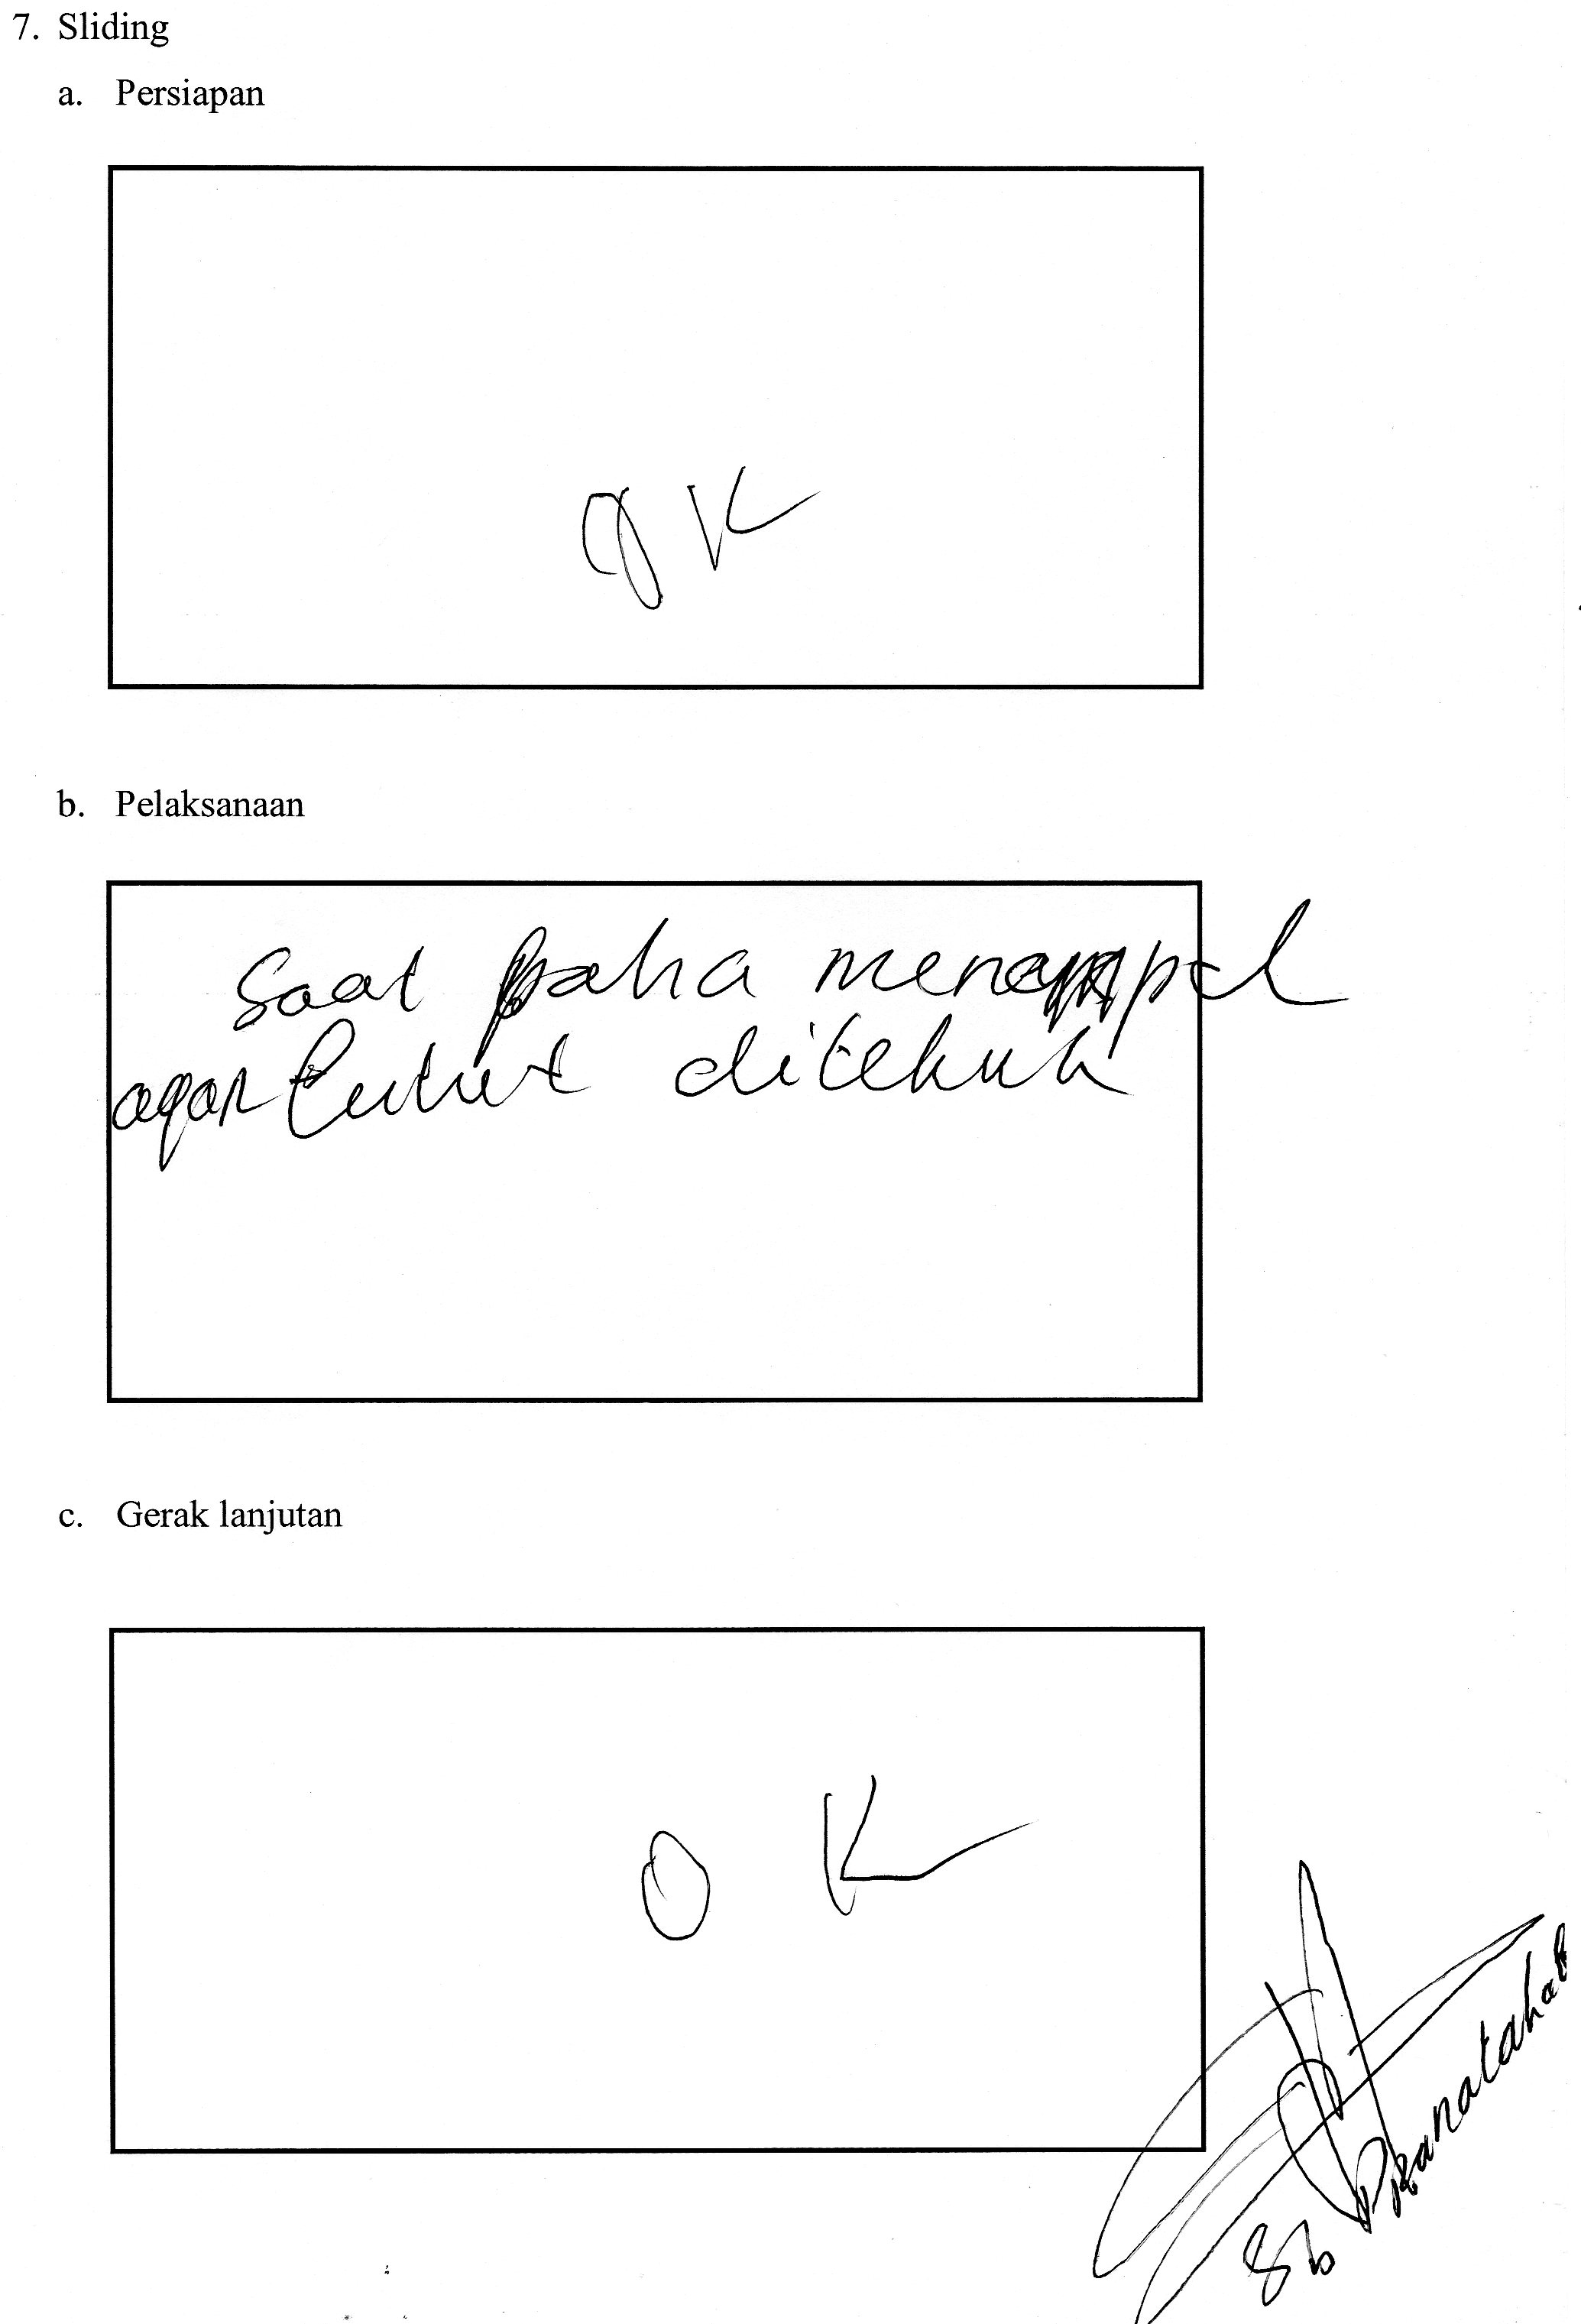 7. Sliding
a. Persiapan
OK
b. Pelaksanaan
Saat paha menempel
agar lutut ditekuk
c. Gerak lanjutan
OK
Sb Pranatahadi